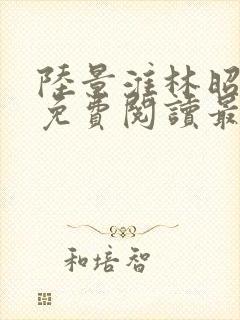 陸景淮林昭
免費閱讀最
和培智